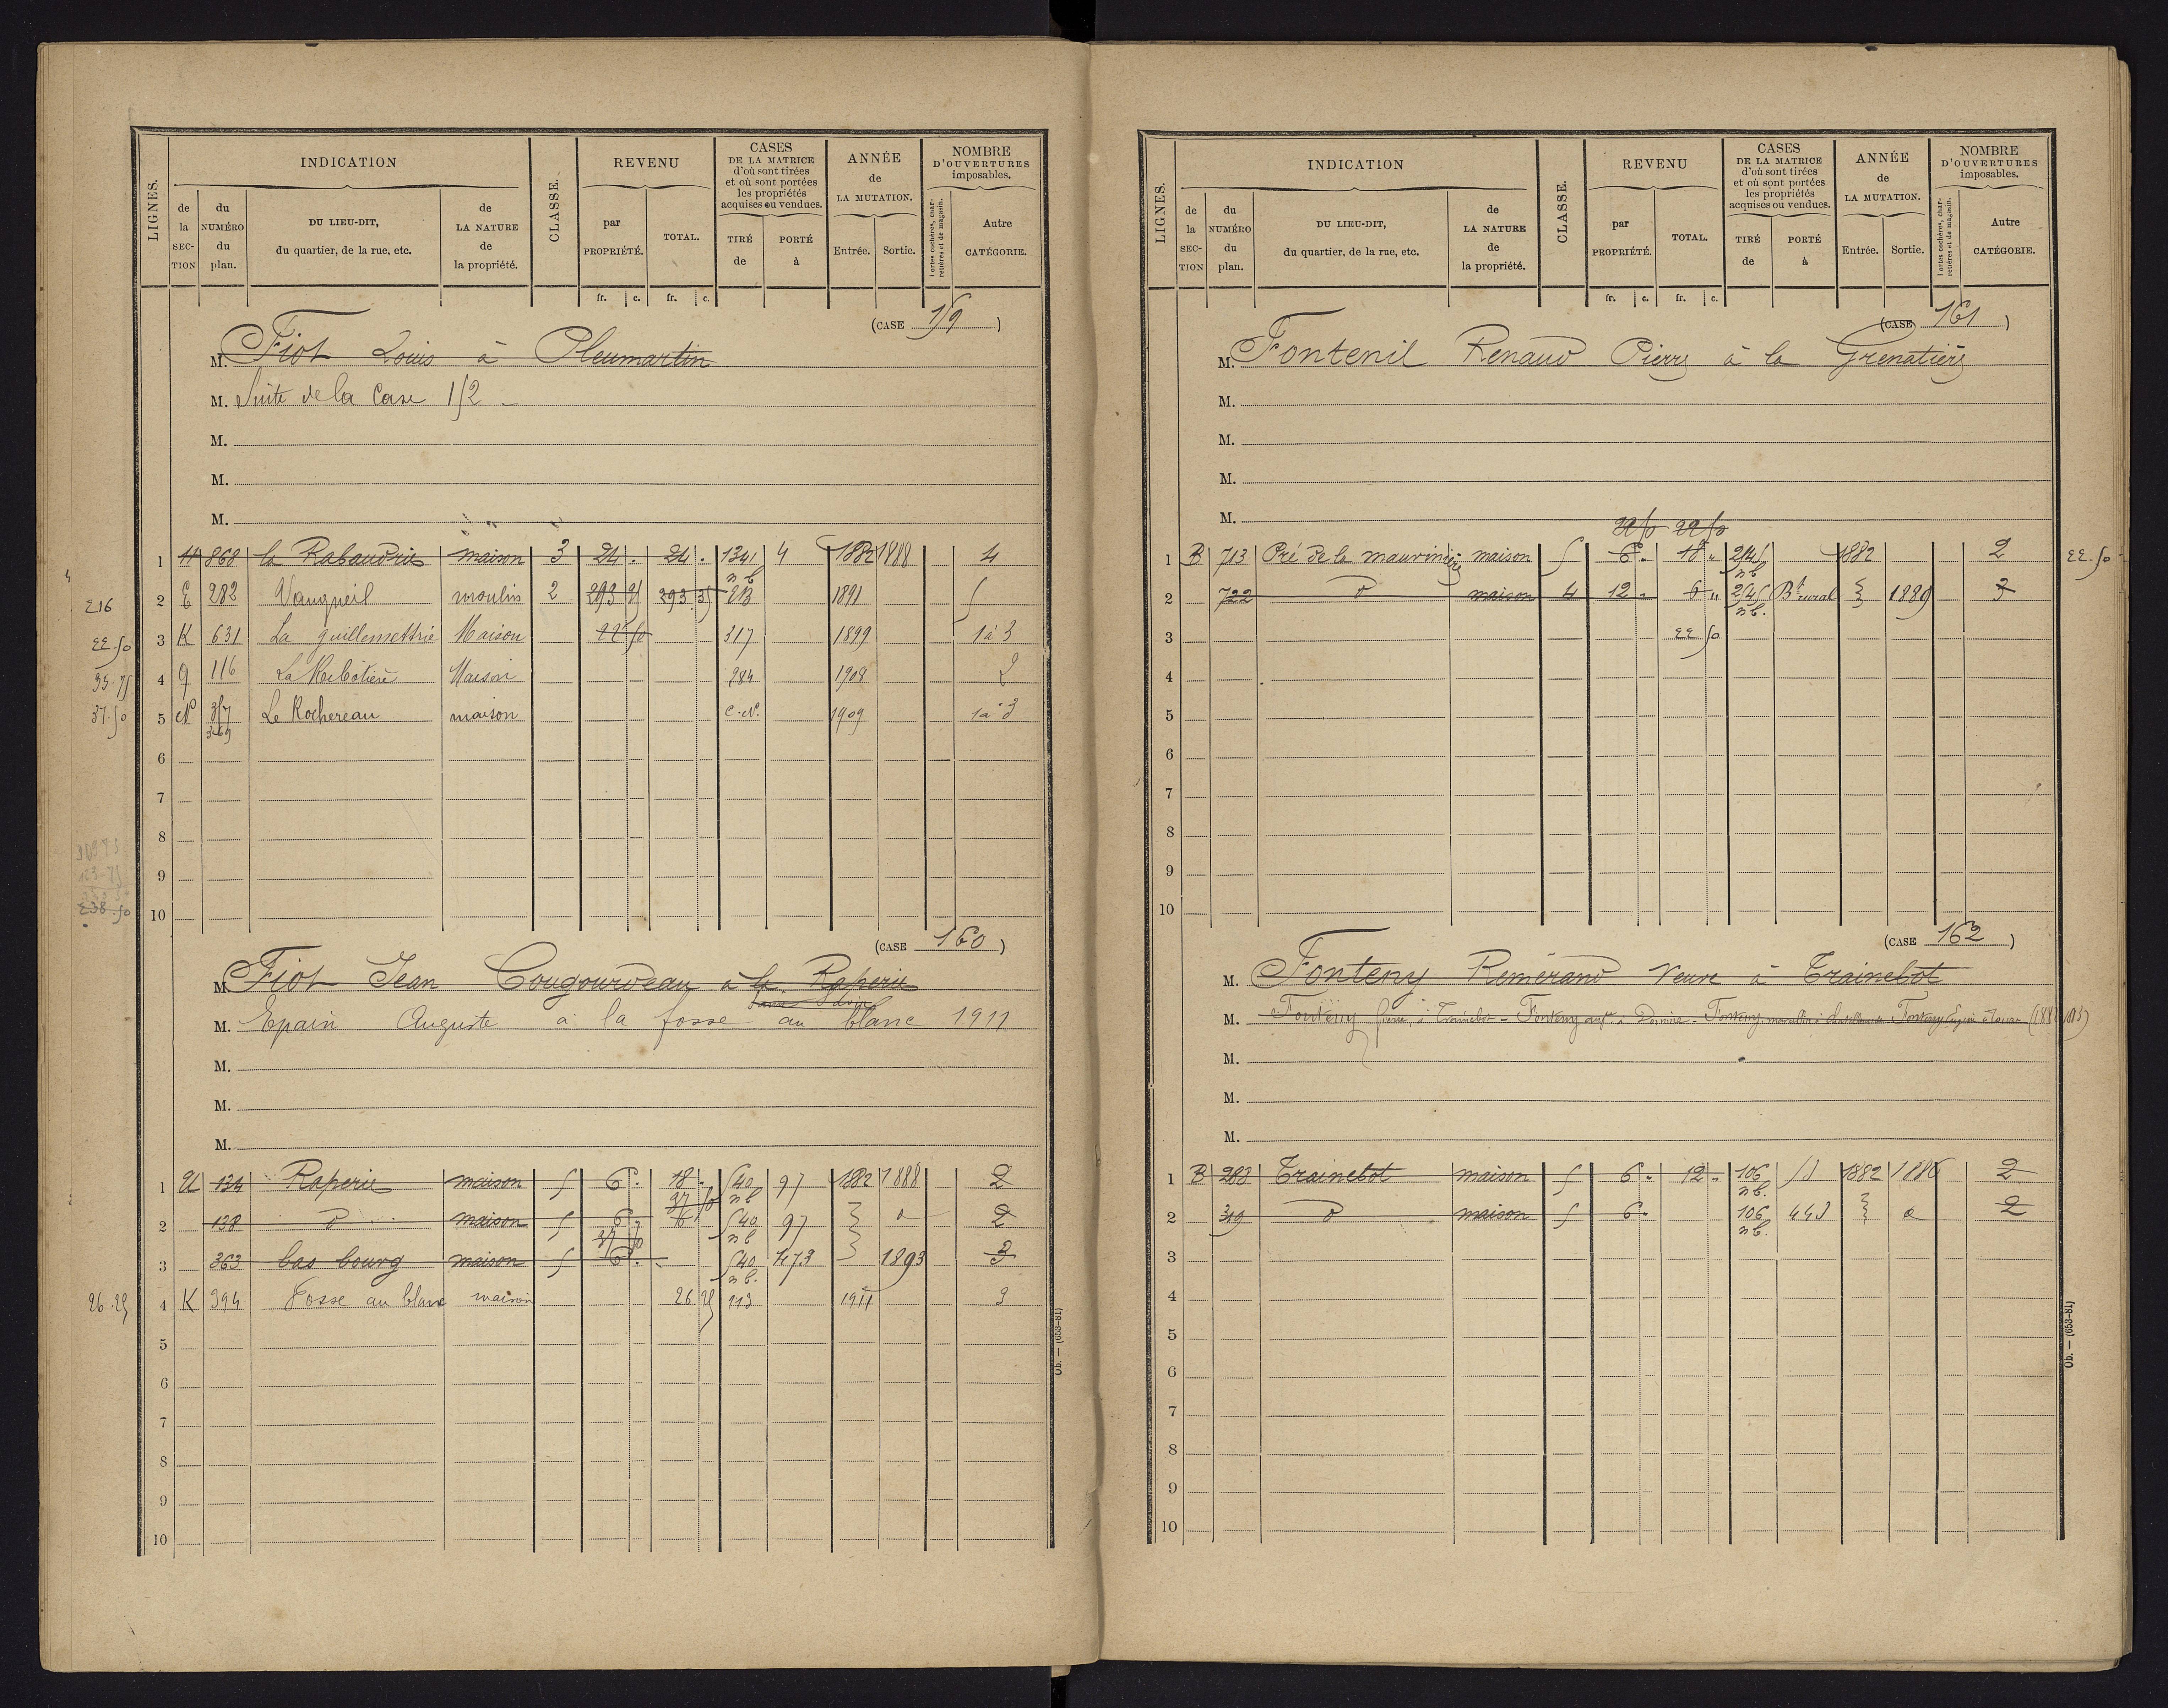 LIGNES.
INDICATION
de la SECTION
du NUMÉRO du plan.
DU LIEU-DIT, du quartier, de la rue, etc.
de LA NATURE de la propriété.
CLASSE.
REVENU
par PROPRIÉTÉ.
TOTAL.
CASES DE LA MATRICE d'où sont tirées et où sont portées les propriétés acquises ou vendues.
TIRÉ de
PORTÉ à
ANNÉE de LA MUTATION.
Entrée.
Sortie.
NOMBRE D'OUVERTURES imposables.
Portes cochères, charretières et de magasin.
Autre CATÉGORIE.
fr. c. fr. c.
(CASE 159)
M. Fiot Louis à Pleumartin
M. Suite de la Case 152
M.
M.
M.
1 H 868 la Rabaudrie maison 3 24 . 24 . 1341 4 1882 1888 4
nb
216 2 E 282 Vauqueil moulin 2 293 393 35 1891 5
22.50 3 K 631 La guillemettrie Maison 22 50 317 1899 1 à 3
4 116 Maison 284 1908 2
37.50 5 N 357 Le Rochereau maison C.N. 1909 1 à 3
369
6
7
8
9
238.50 10
(CASE 160)
M. Fiot Jean Cougourdeau à la Raperie
M. Epain Auguste à la fosse au blanc 1911
M.
M.
M.
1 134 Raperie maison 5 6 . 18 . 540 97 1882 1888 2
37 50 nb
2 138 d maison 5 6 540 97 d 2
37 50 nb
3 363 bas bourg maison 5 6 . 540 473 1893 3
nb.
26.25 4 K 394 Fosse au blanc maison 26 25 113 1911 3
5
6
7
8
9
10
Ob. — (653-81)
LIGNES.
INDICATION
de la SECTION
du NUMÉRO du plan.
DU LIEU-DIT, du quartier, de la rue, etc.
de LA NATURE de la propriété.
CLASSE.
REVENU
par PROPRIÉTÉ.
TOTAL.
CASES DE LA MATRICE d'où sont tirées et où sont portées les propriétés acquises ou vendues.
TIRÉ de
PORTÉ à
ANNÉE de LA MUTATION.
Entrée.
Sortie.
NOMBRE D'OUVERTURES imposables.
Portes cochères, charretières et de magasin.
Autre CATÉGORIE.
fr. c. fr. c.
(CASE 161)
M. Fontenil Renaud Pierre à la Grenatière
M.
M.
M.
M.
22 50 22 50
1 B 713 Pré de la mauvinière maison 5 6 . 18 " 245 1882 2 22.50
nb
2 722 d maison 4 12 " 6 " 245 Bt rural 1889 3
nb.
3 22 50
4
5
6
7
8
9
10
(CASE 162)
M. Fonteny Remerand Veuve à Trainebot
M. Fonteny Pierre, à Trainebot - Fonteny
M.
M.
M.
1 B 283 Trainebot maison 5 6 " 12 " 106 1882 1886 2
nb.
2 319 d maison 5 6 " 106 443 d 2
nb.
3
4
5
6
7
8
9
10
Ob. — (653-81)